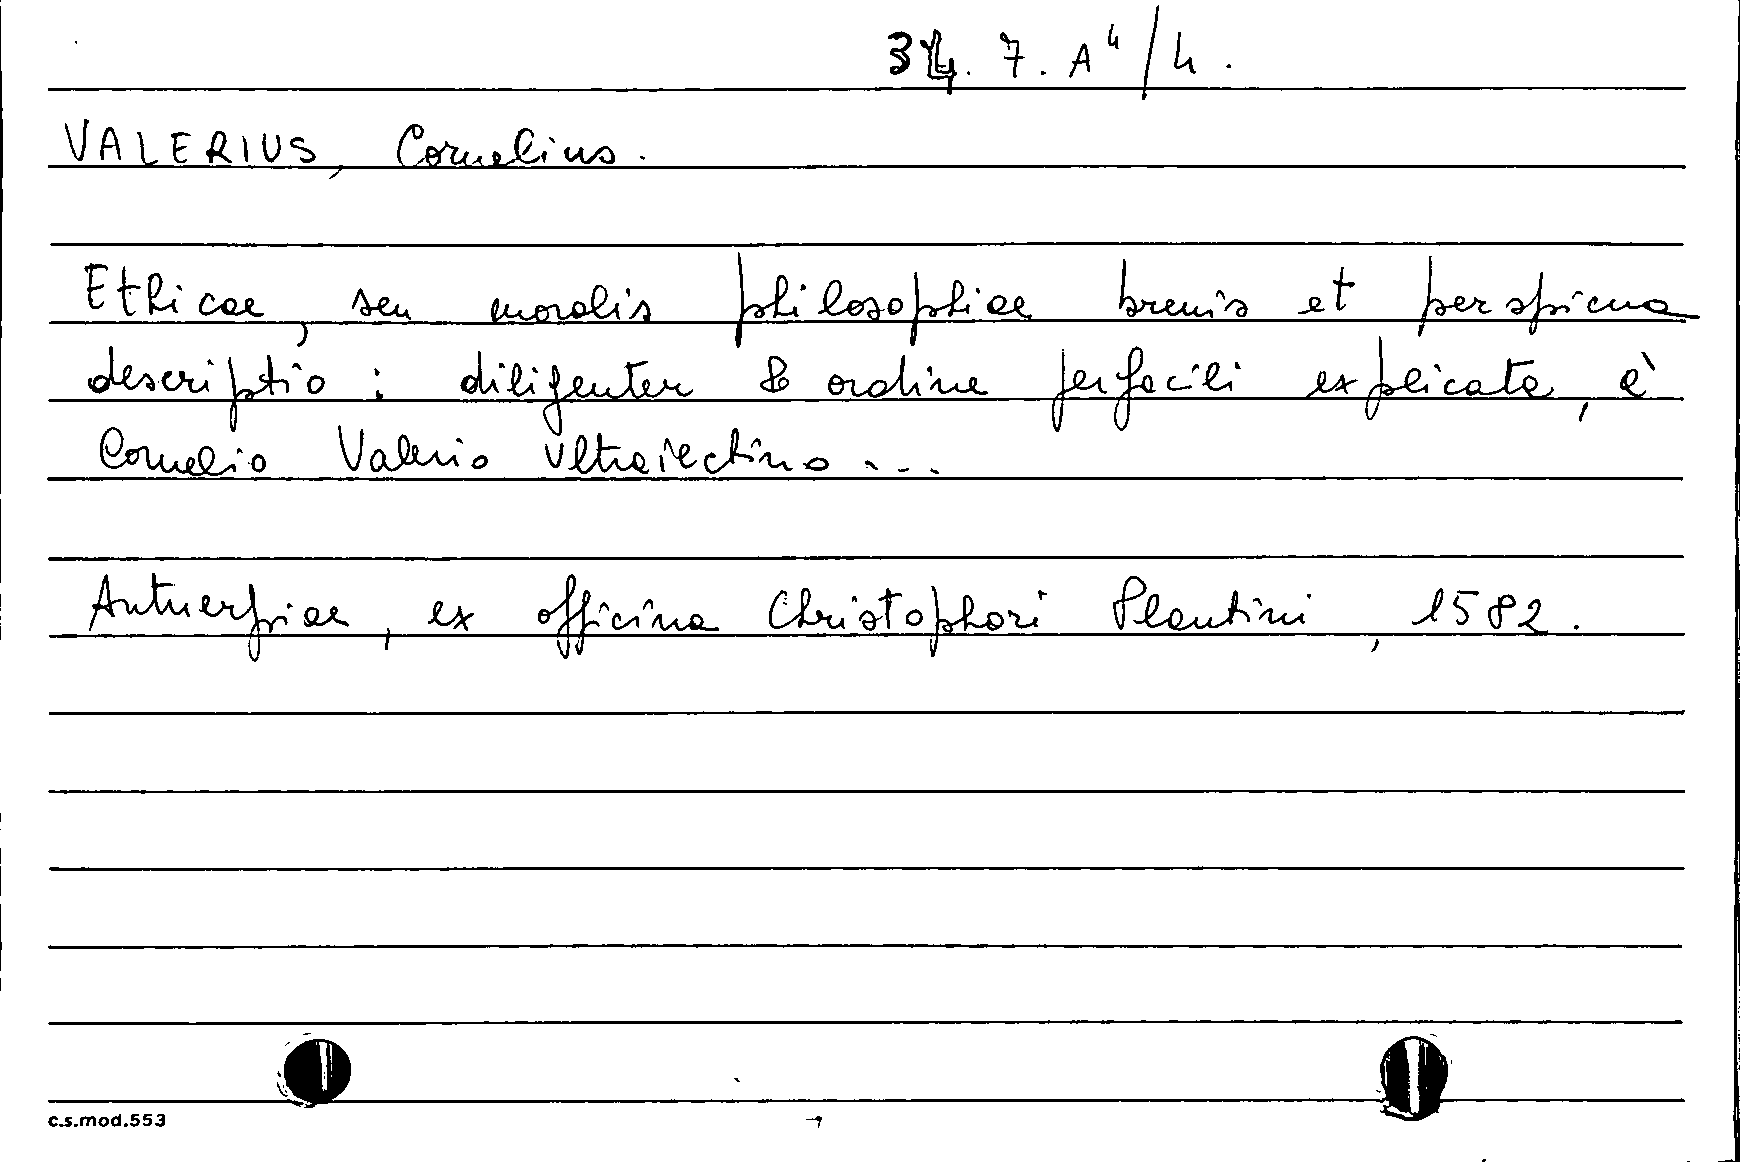 34. 7. A⁴/4.
VALERIUS, Cornelius.
Ethicae, seu moralis philosophiae breuis et perspicua
descriptio: diligenter & ordine perfacili explicata, è
Cornelio Valerio Vltraiectino...
Antuerpiae, ex officina Christophori Plantini, 1582.
c.s.mod.553